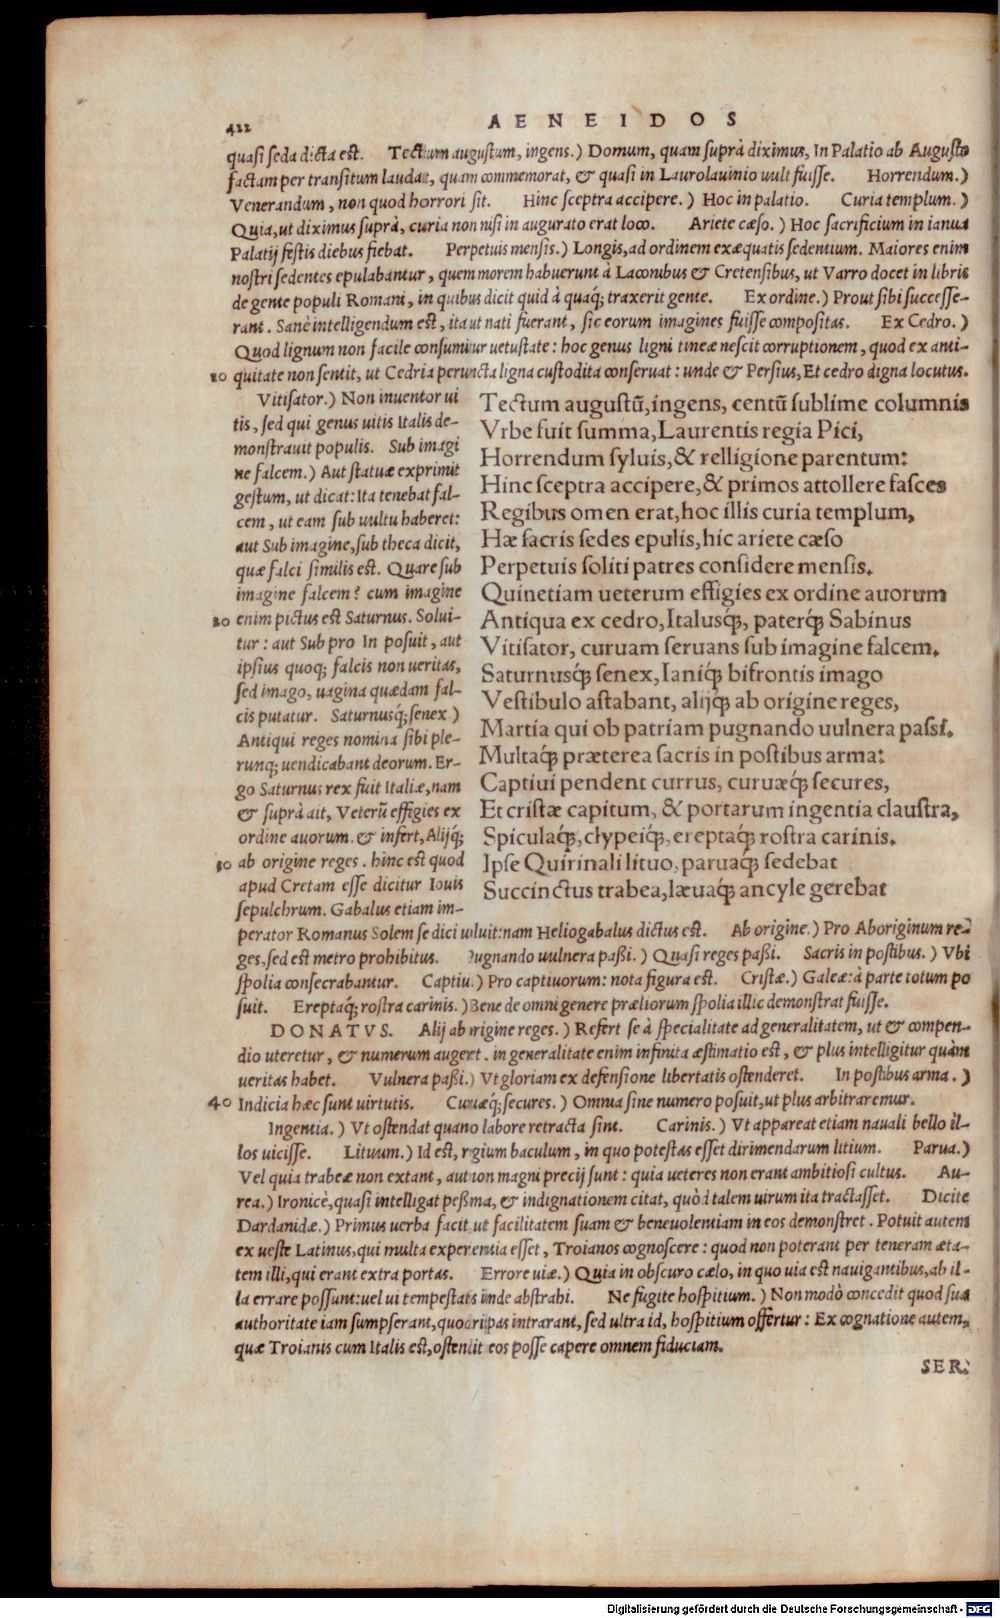 422
AENEIDOS
quasi seda dicta est. Tectum augustum, ingens.) Domum, quam suprà diximus, In Palatio ab Augusto
factam per transitum laudat, quam commemorat, & quasi in Laurolauinio uult fuisse. Horrendum.)
Venerandum, non quod horrori sit. Hinc sceptra accipere.) Hoc in palatio. Curia templum.)
Quia, ut diximus suprà, curia non nisi in augurato erat loco. Ariete cæso.) Hoc sacrificium in ianua
Palatij festis diebus fiebat. Perpetuis mensis.) Longis, ad ordinem exæquatis sedentium. Maiores enim
nostri sedentes epulabantur, quem morem habuerunt à Laconibus & Cretensibus, ut Varro docet in libris
de gente populi Romani, in quibus dicit quid à quaq́; traxerit gente. Ex ordine.) Prout sibi successe-
rant. Sanè intelligendum est, ita ut nati fuerant, sic eorum imagines fuisse compositas. Ex Cedro.)
Quod lignum non facile consumitur uetustate: hoc genus ligni tineæ nescit corruptionem, quod ex anti-
10 quitate non sentit, ut Cedria peruncta ligna custodita conseruat: unde & Persius, Et cedro digna locutus.
Vitisator.) Non inuentor ui
tis, sed qui genus uitis Italis de-
monstrauit populis. Sub imagi
ne falcem.) Aut statuæ exprimit
gestum, ut dicat: Ita tenebat fal-
cem, ut eam sub uultu haberet:
aut Sub imagine, sub theca dicit,
quæ falci similis est. Quare sub
imagine falcem? cum imagine
20 enim pictus est Saturnus. Solui-
tur: aut Sub pro In posuit, aut
ipsius quoq; falcis non ueritas,
sed imago, uagina quædam fal-
cis putatur. Saturnusq́; senex)
Antiqui reges nomina sibi ple-
runq; uendicabant deorum. Er-
go Saturnus rex fuit Italiæ, nam
& suprà ait, Veterū effigies ex
ordine auorum. & infert, Alijq́;
30 ab origine reges. hinc est quod
apud Cretam esse dicitur Iouis
sepulchrum. Gabalus etiam im-
Tectum augustū, ingens, centū sublime columnis
Vrbe fuit summa, Laurentis regia Pici,
Horrendum syluis, & relligione parentum:
Hinc sceptra accipere, & primos attollere fasces
Regibus omen erat, hoc illis curia templum,
Hæ sacris sedes epulis, hic ariete cæso
Perpetuis soliti patres considere mensis.
Quinetiam ueterum effigies ex ordine auorum
Antiqua ex cedro, Italusq́;, paterq́; Sabinus
Vitisator, curuam seruans sub imagine falcem.
Saturnusq́; senex, Ianiq́; bifrontis imago
Vestibulo astabant, alijq́; ab origine reges,
Martia qui ob patriam pugnando uulnera passi.
Multaq́; præterea sacris in postibus arma:
Captiui pendent currus, curuæq́; secures,
Et cristæ capitum, & portarum ingentia claustra,
Spiculaq́;, clypeiq́;, ereptaq́; rostra carinis.
Ipse Quirinali lituo, paruaq́; sedebat
Succinctus trabea, læuaq́; ancyle gerebat
perator Romanus Solem se dici uoluit: nam Heliogabalus dictus est. Ab origine.) Pro Aboriginum re-
ges, sed est metro prohibitus. Pugnando uulnera passi.) Quasi reges passi. Sacris in postibus.) Vbi
spolia consecrabantur. Captiui.) Pro captiuorum: nota figura est. Cristæ.) Galeæ: à parte totum po
suit. Ereptaq́; rostra carinis.) Bene de omni genere præliorum spolia illic demonstrat fuisse.
DONATVS. Alij ab origine reges.) Refert se à specialitate ad generalitatem, ut & compen-
dio uteretur, & numerum augeret. in generalitate enim infinita æstimatio est, & plus intelligitur quàm
ueritas habet. Vulnera passi.) Vt gloriam ex defensione libertatis ostenderet. In postibus arma.)
40 Indicia hæc sunt uirtutis. Curuæq́; secures.) Omnia sine numero posuit, ut plus arbitraremur.
Ingentia.) Vt ostendat quano labore retracta sint. Carinis.) Vt appareat etiam nauali bello il-
los uicisse. Lituum.) Id est, regium baculum, in quo potestas esset dirimendarum litium. Parua.)
Vel quia trabeæ non extant, aut non magni precij sunt: quia ueteres non erant ambitiosi cultus. Au-
rea.) Ironicè, quasi intelligat pessima, & indignationem citat, quòd talem uirum ita tractasset. Dicite
Dardanidæ.) Primus uerba facit ut facilitatem suam & beneuolentiam in eos demonstret. Potuit autem
ex ueste Latinus, qui multa experientia esset, Troianos cognoscere: quod non poterant per teneram æta-
tem illi, qui erant extra portas. Errore uiæ.) Quia in obscuro cælo, in quo uia est nauigantibus, ab il-
la errare possunt: uel ui tempestatis inde abstrahi. Ne fugite hospitium.) Non modò concedit quod sua
authoritate iam sumpserant, quod ripas intrarant, sed ultra id, hospitium offertur: Ex cognatione autem,
quæ Troianis cum Italis est, ostendit eos posse capere omnem fiduciam.
SER.
Digitalisierung gefördert durch die Deutsche Forschungsgemeinschaft - DFG